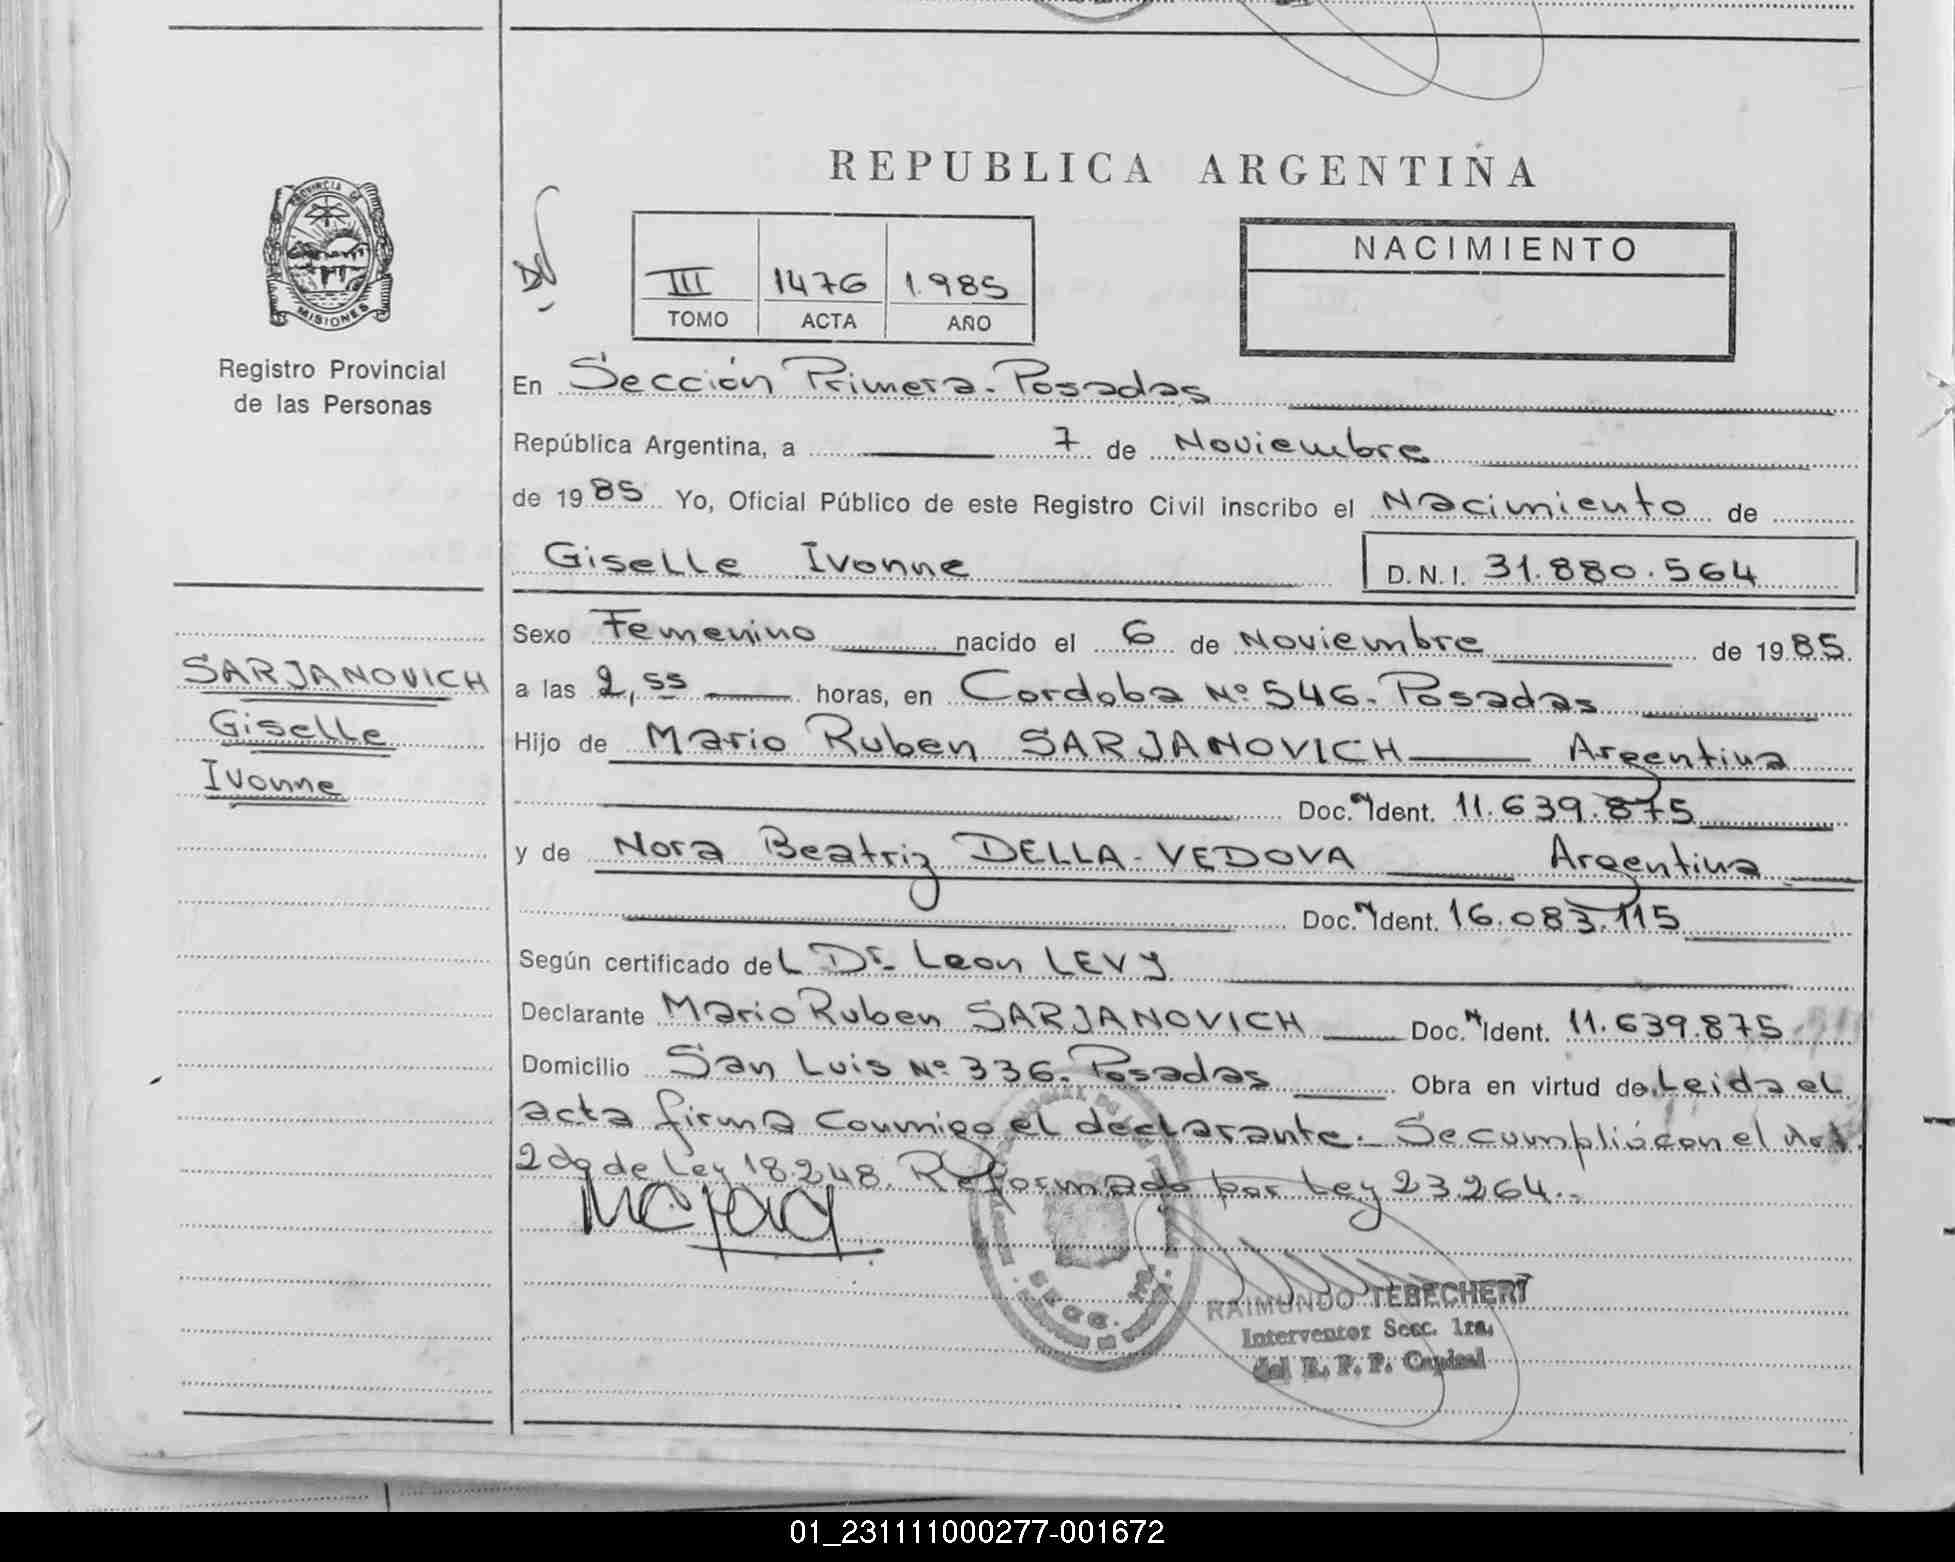 REPUBLICA ARGENTINA
PROVINCIA DE
MISIONES
Registro Provincial
de las Personas
III 1476 1.985
TOMO ACTA AÑO
NACIMIENTO
En Sección Primera. Posadas
República Argentina, a 7 de Noviembre
de 1985 Yo, Oficial Público de este Registro Civil inscribo el Nacimiento de
Giselle Ivonne D.N.I. 31.880.564
Sexo Femenino nacido el 6 de Noviembre de 1985.
SARJANOVICH
Giselle
Ivonne
a las 2,55 horas, en Cordoba Nº 546. Posadas
Hijo de Mario Ruben SARJANOVICH Argentina
Doc. N Ident. 11.639.875
y de Nora Beatriz DELLA-VEDOVA Argentina
Doc. N Ident. 16.083.115
Según certificado del Dr. Leon LEVY
Declarante Mario Ruben SARJANOVICH Doc. N Ident. 11.639.875
Domicilio San Luis Nº 336. Posadas Obra en virtud de Leida el
acta firma conmigo el declarante. Se cumplió con el Art.
2do de Ley 18.248. Reformado por Ley 23.264..
RAIMUNDO TEBECHERI
Interventor Secc. 1ra.
del R. P. P. Capital
01_231111000277-001672